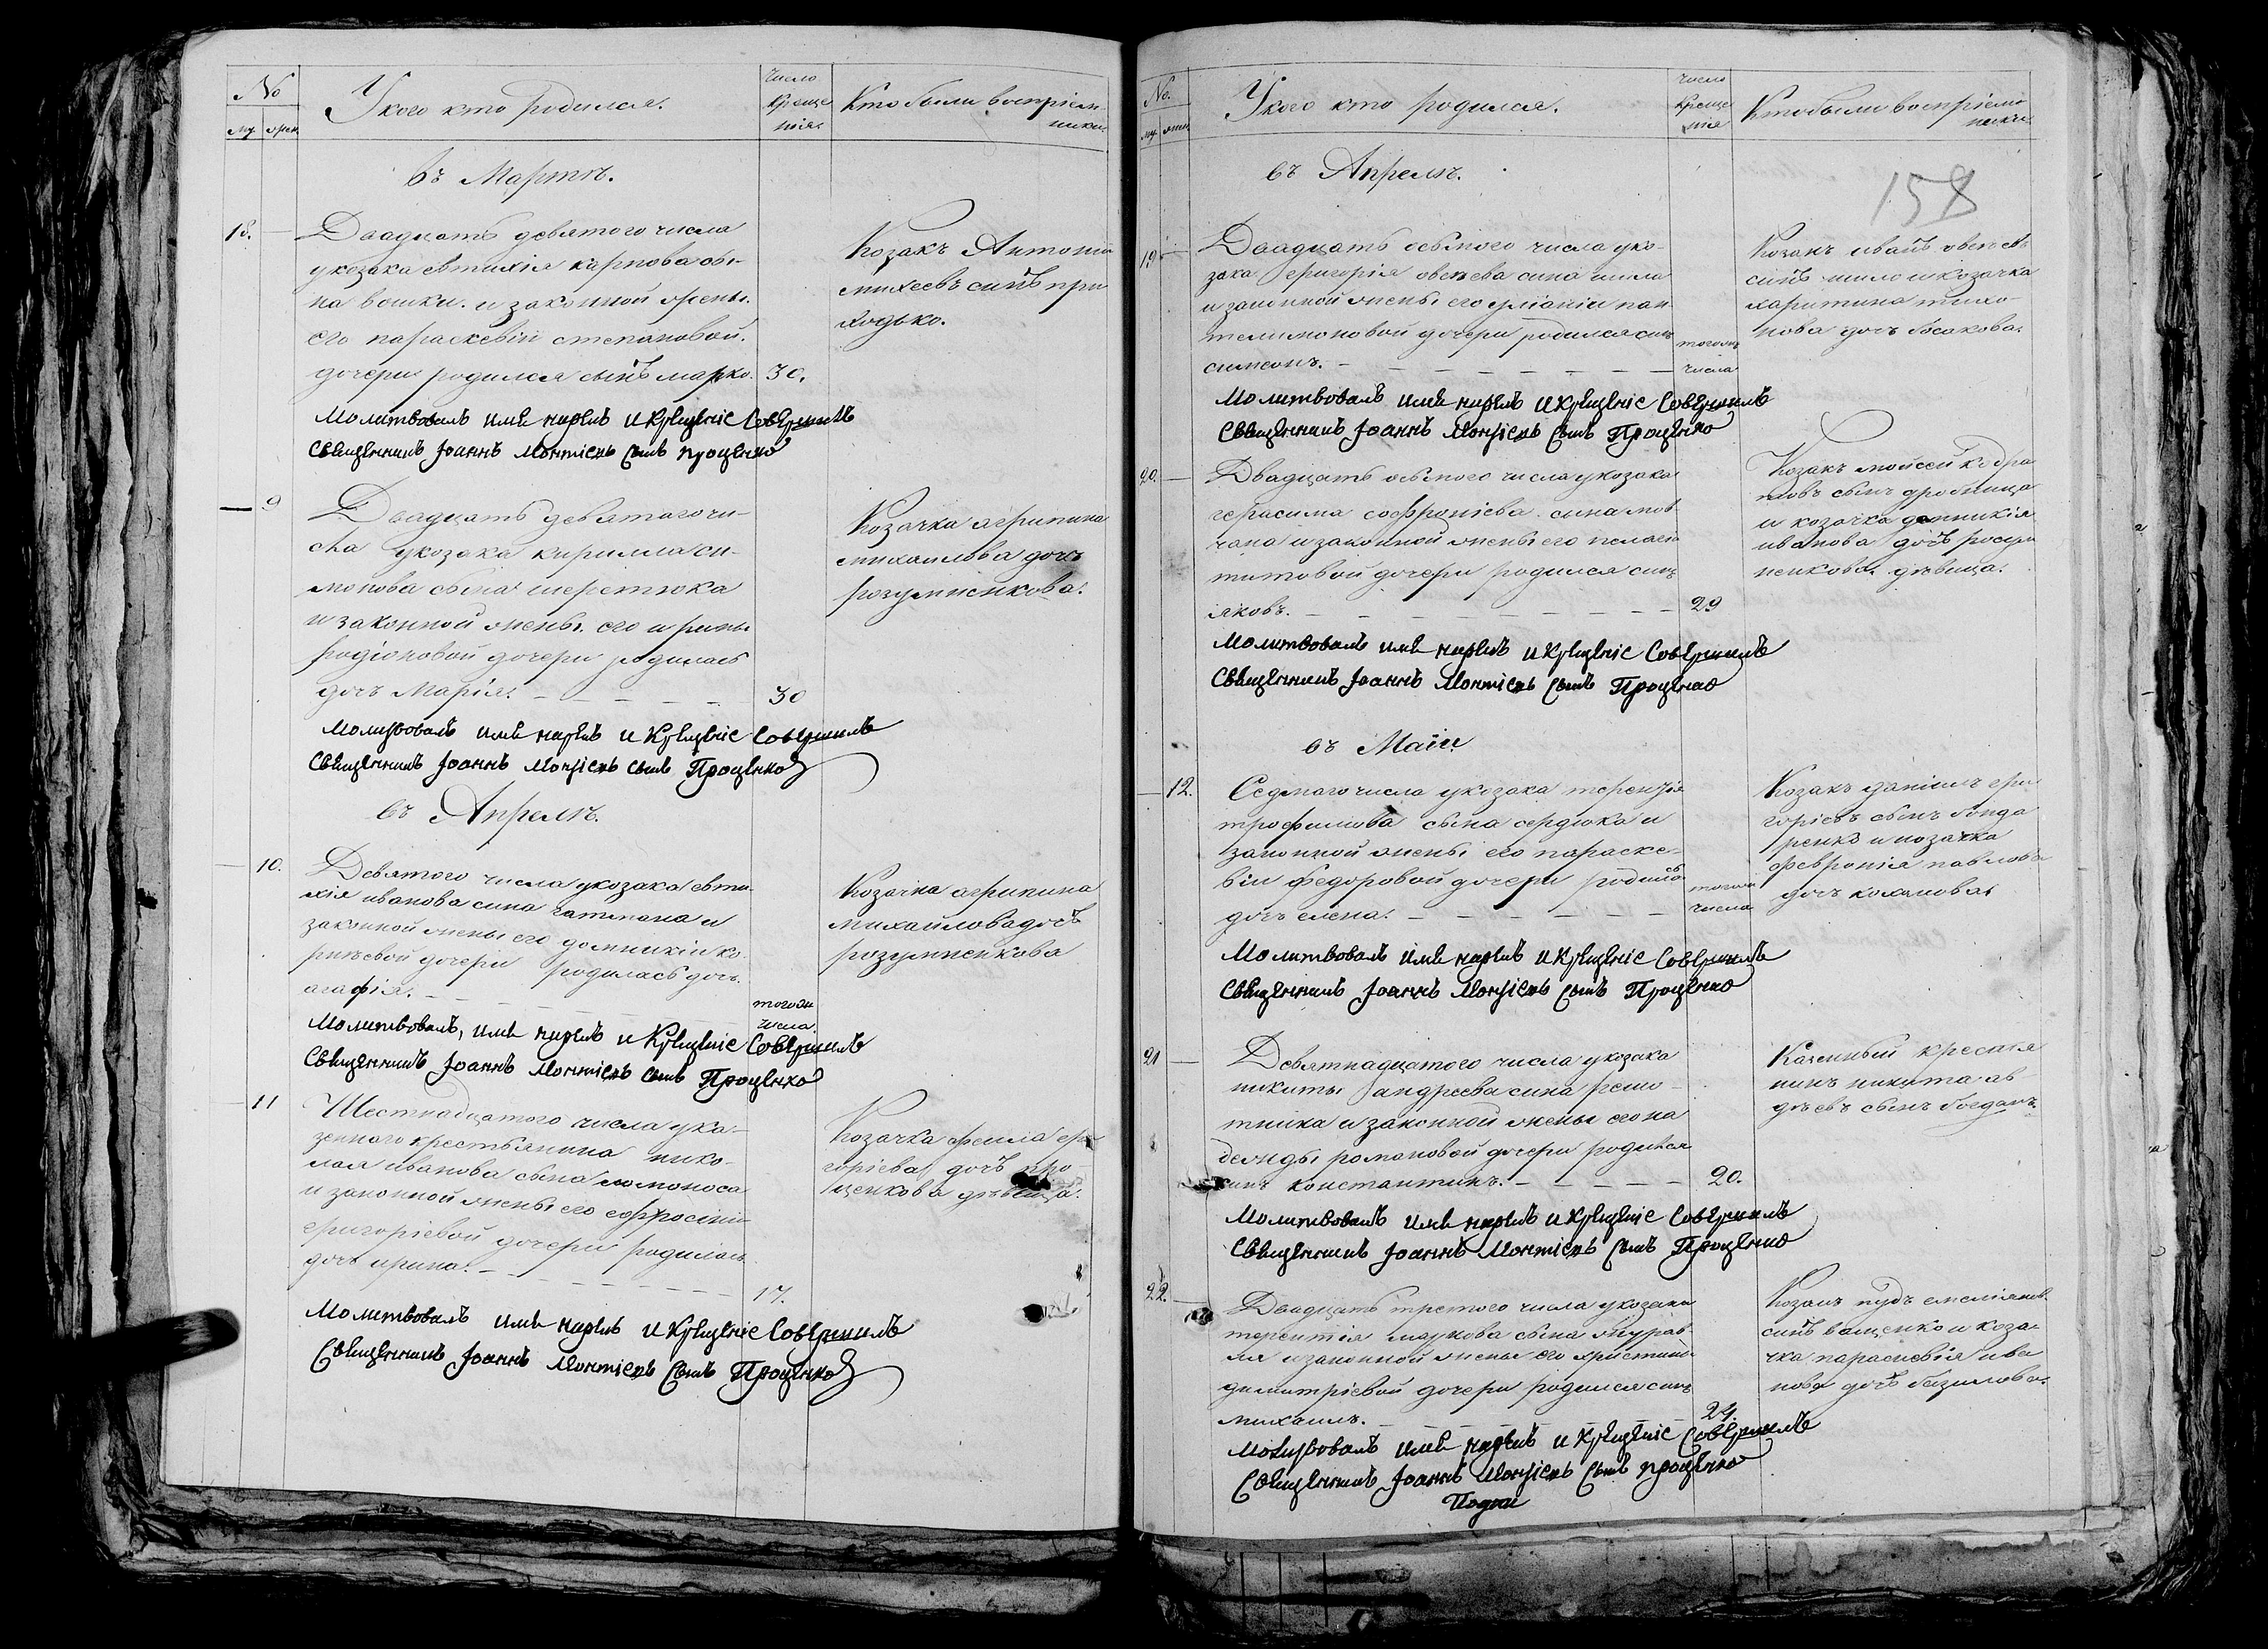 №
му
жен
У кого кто родился.
Число
креще
нія.
Кто были воспріем-
ники.
въ Мартѣ.
18.
Двадцать девятого числа
у козака евтихія карпова сы-
на вошки. и законной жены.
его параскевіи степановой.
дочери родился сынъ марко.
30.
Козакъ Антоній
михеевъ синъ при
ходько.
Молитвовалъ имя нарекъ и крещеніе совершилъ
Священникъ Іоаннъ Моѵсіевъ сынъ Проценко
9
Двадцать девятого чи-
сла у козака кирилла си-
монова сына шеретюка
и законной жены его ирины
родіоновой дочери родилась
дочъ Марія.
30
Козачка агрипина
михаилова дочъ
розумиенкова.
Молитвовалъ имя нарекъ и крещеніе совершилъ
Священникъ Іоаннъ Моѵсіевъ сынъ Проценко
въ Апрелѣ.
10.
Девятого числа у козака евти-
хія иванова сина
законной жены его домникіи ко-
рнѣевой дочери родилась дочъ.
агафія.
тогож
числа.
Козачка агрипина
михайлова дочъ
розумиенкова
Молитвовалъ, имя нарекъ и крещеніе совершилъ
Священникъ Іоаннъ Моѵсіевъ сынъ Проценко
11
Шестнадцатого числа у ка-
зенного крестьянина нико-
лая иванова сына ломоноса
и законной жены его евфросиніи
григоріевой дочери родилась
дочъ ирина.
17.
Козачка феклa гри
горіева дочъ про-
ценкова дѣвица.
Молитвовалъ имя нарекъ и крещеніе совершилъ
Священникъ Іоаннъ Моѵсіевъ сынъ Проценко
№.
му
жен
У кого кто родился.
число
креще
нія
Кто были воспріем
ники.
въ Апрелѣ.
158
19
Двадцать осьмого числа у ко-
зака григорія овсѣева сина шила
и законной жены его уліаніи пан
телимоновой дочери родился синъ
симеонъ.
тогожъ
числа
Козакъ иванъ овсѣевъ
синъ шило и козачка
харитина тихо-
нова дочъ босакова.
Молитвовалъ имя нарекъ и крещеніе совершилъ
Священникъ Іоаннъ Моѵсіевъ сынъ Проценко
20.
Двадцать осьмого числа у козака
герасима софроніева сина мов
чана и законной жены его пелагіи
титовой дочери родился синъ
яковъ.
29
Козакъ мойсей кодра
товъ сынъ дробница
и козачка домникія
иванова дочъ розум
иенкова. дѣвица.
Молитвовалъ имя нарекъ и крещеніе совершилъ
Священникъ Іоаннъ Моѵсіевъ сынъ Проценко
въ Маіи
12.
Седмаго числа у козака терентія
трофимова сына сердюка и
законной жены его параске-
віи федоровой дочери родилась
дочъ елена.
тогож
числа
Козакъ даніилъ гри
горіевъ сынъ бонда
ренко и козачка
февронія павлова
дочъ
Молитвовалъ имя нарекъ и крещеніе совершилъ
Священникъ Іоаннъ Моѵсіевъ сынъ Проценко
21
Девятнадцатого числа у козака
никиты андреева сина реше-
тника и законной жены его на
дежды романовой дочери родился
синъ константинъ.
20.
Казенный крестья
нинъ никита ав
дѣевъ сынъ богданъ.
Молитвовалъ имя нарекъ и крещеніе совершилъ
Священникъ Іоаннъ Моѵсіевъ сынъ Проценко
22.
Двадцать третого числа у козака
терентія маркова сына журав
ля и законной жены его христины
димитріевой дочери родился синъ
михаилъ.
24.
Козакъ нудъ емеліянов
синъ ващенко и коза-
чка параскевія ива
нова дочъ базилова.
Молитвовалъ имя нарекъ и крещеніе совершилъ
Священникъ Іоаннъ Моѵсіевъ сынъ Проценко